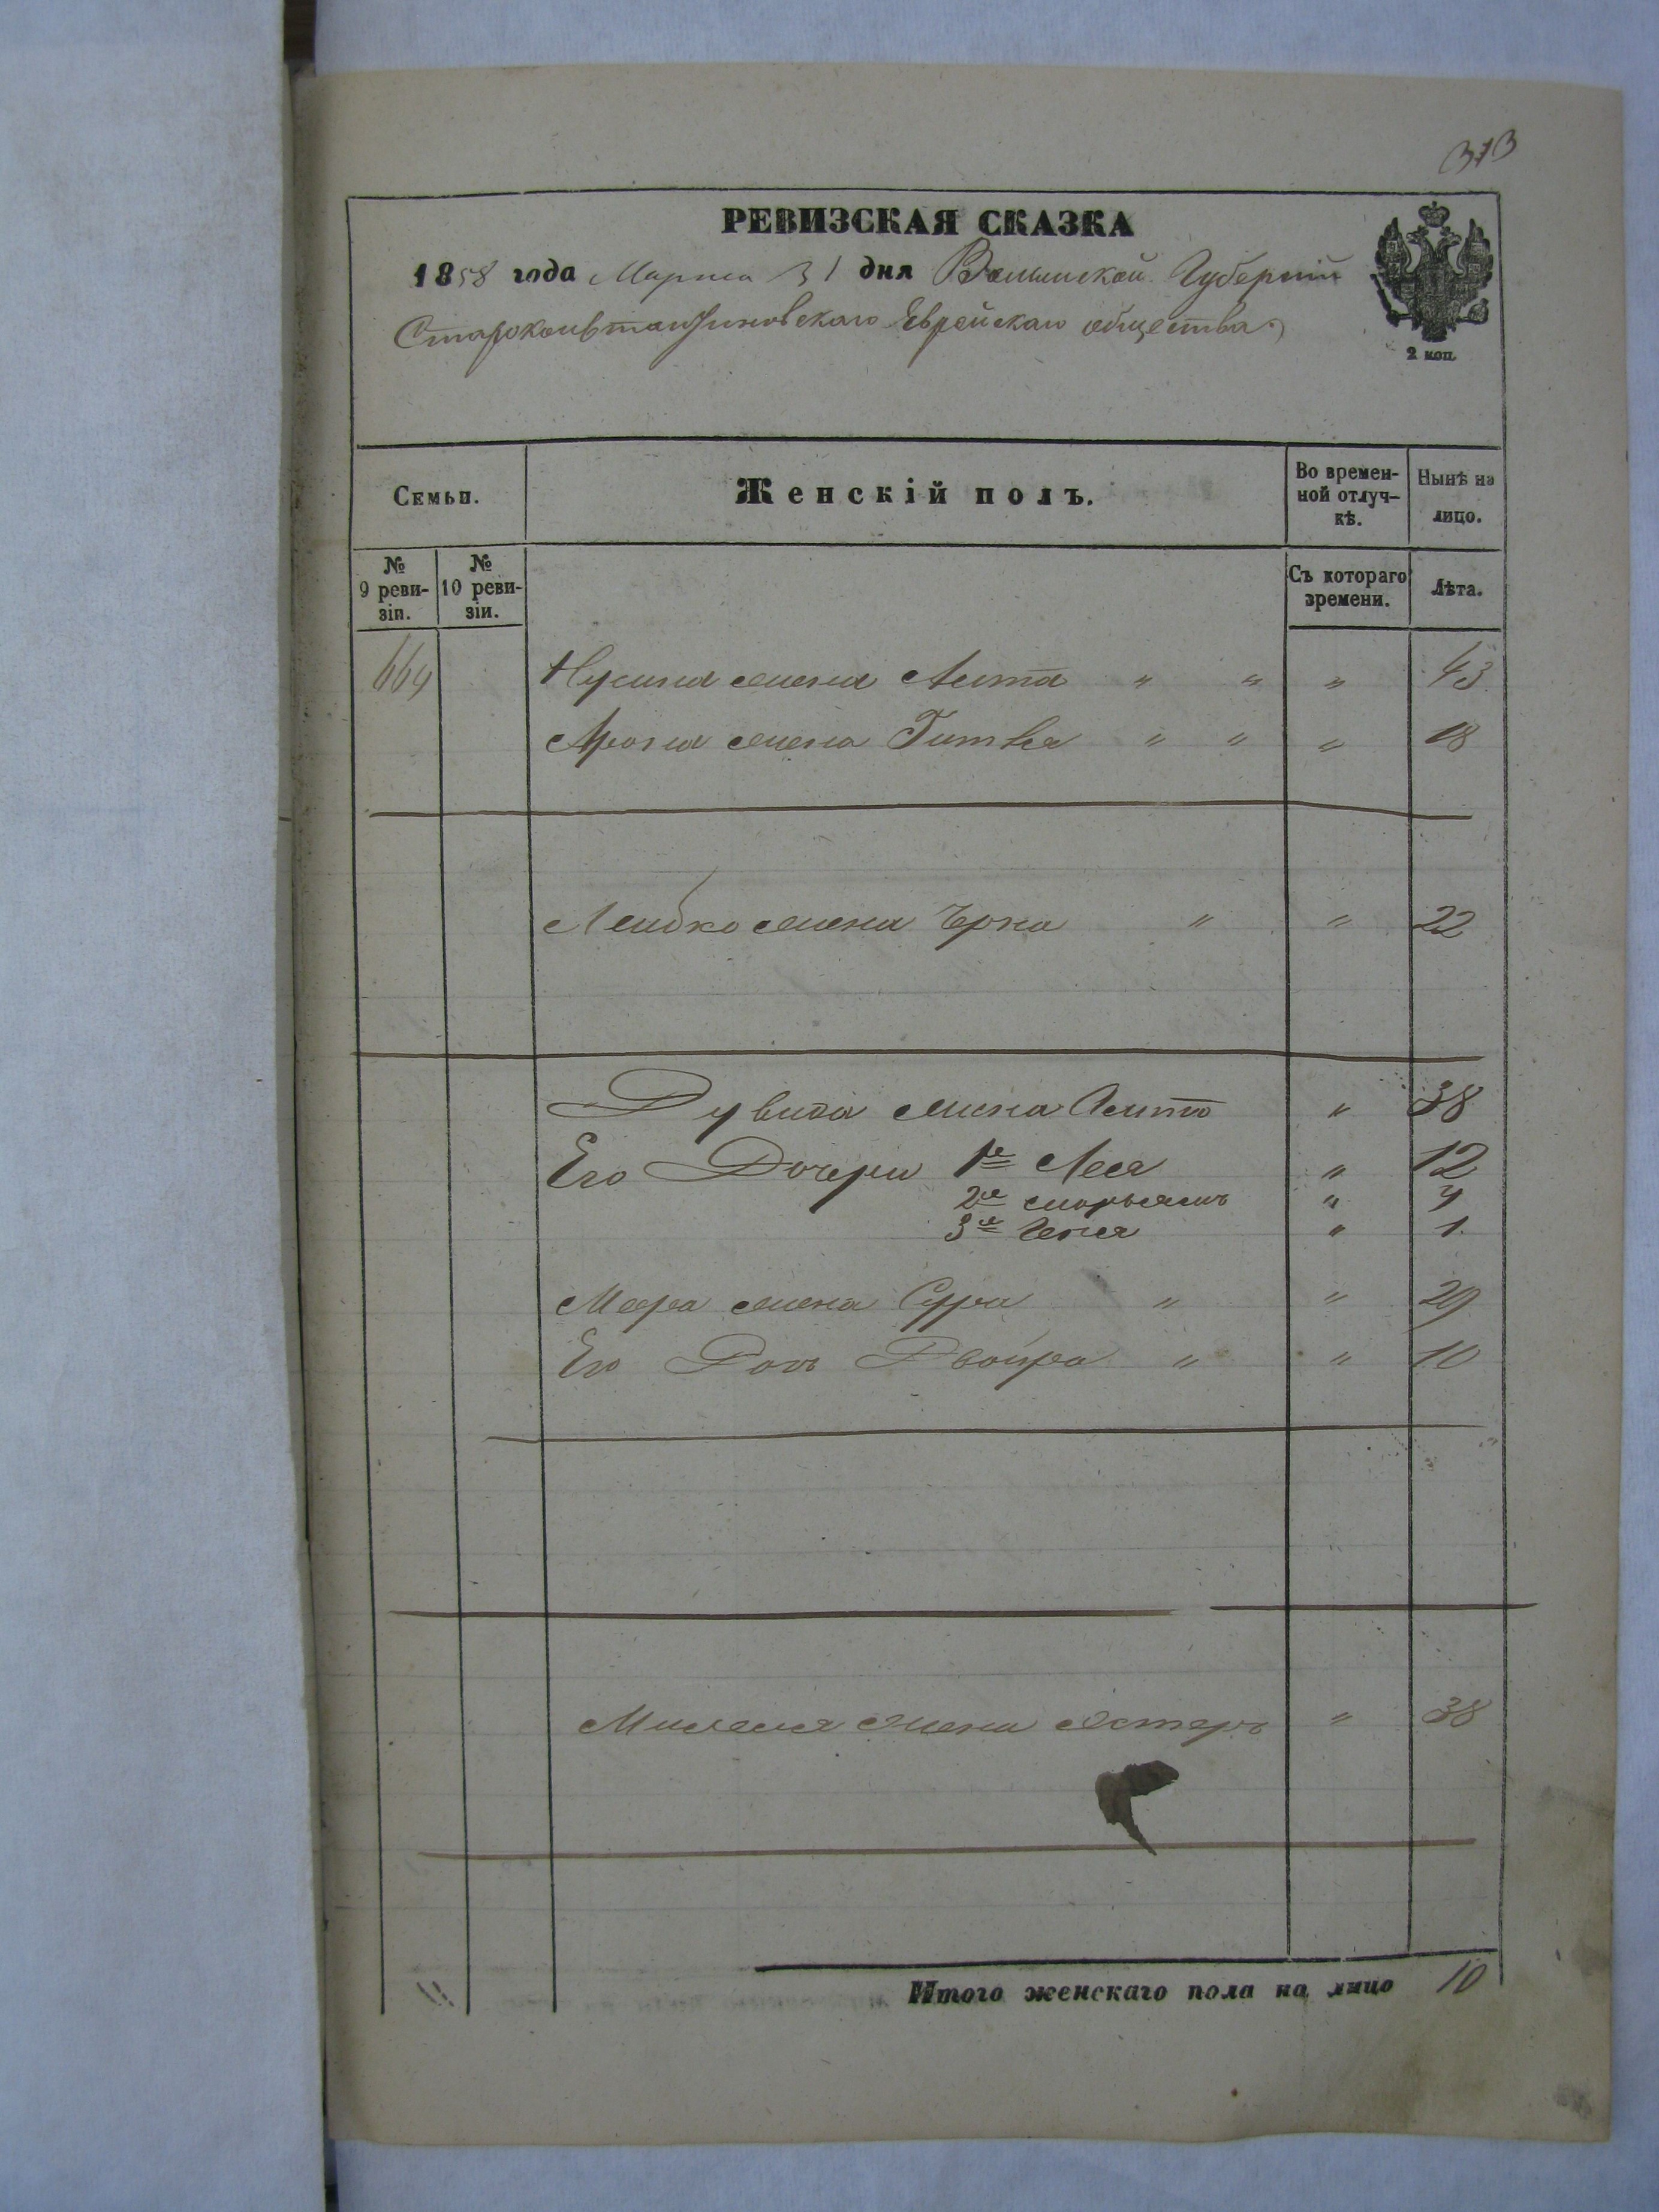 313
РЕВИЗСКАЯ СКАЗКА
1858 года Марта 31 дня Волынской Губерніи
Староконстантиновскаго Еврейскаго общества
2 коп.
Семьи.
Женскій полъ.
Во времен-
ной отлуч-
кѣ.
Нынѣ на
лицо.
№
9 реви-
зіи.
№
10 реви-
зіи.
Съ котораго
времени.
Лѣта.
664 Нусина жена " " " 43
Арона жена Гитля " " " 18
Лейбко жена " " 22
Дувида жена " 38
Его Дочери 1я Лея " 12
2я " 4
3я " 1
Меера жена Сура " " 29
Его Дочь Двойра " " 10
жена Эстеръ " 38
"
Итого женскаго пола на лицо 10